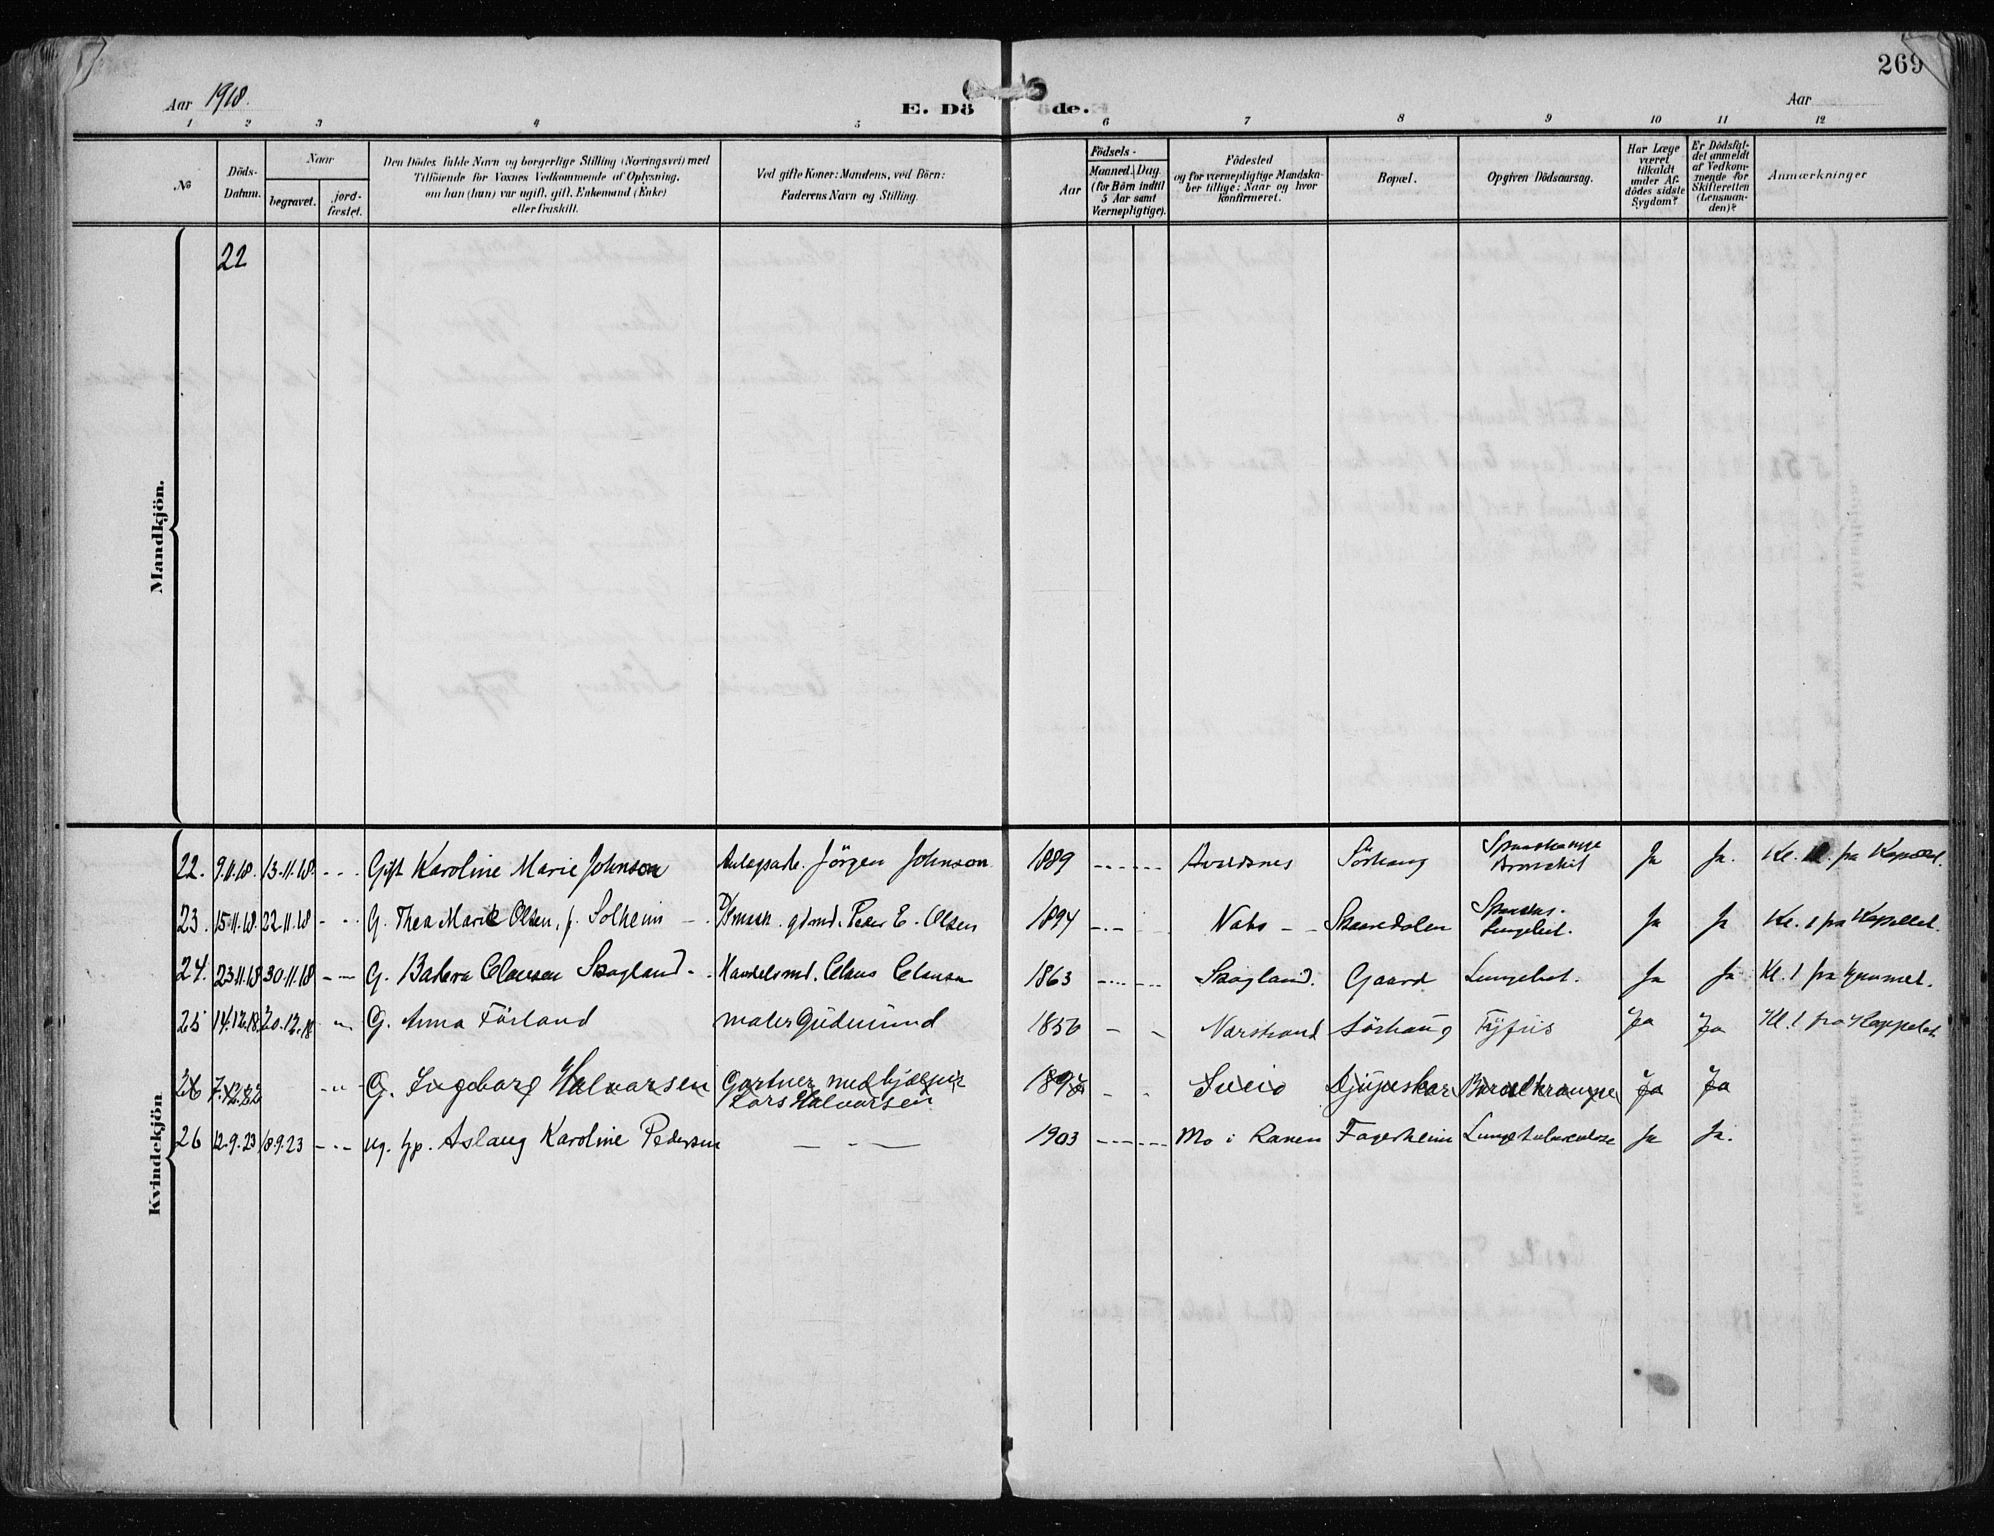 269
Aar 1918.
E. Dö de.
Aar
1 2 3 4 5 6 7 8 9 10 11 12
No
Döds-
Datum.
Naar
begravet.
jord-
fæstet.
Den Dödes fulde Navn og borgerlige Stilling (Næringsvei) med
Tilföiende for Voxnes Vedkommende af Oplysning,
om han (hun) var ugift, gift, Enkemand (Enke)
eller fraskilt.
Ved gifte Koner: Mandens, ved Börn:
Faderens Navn og Stilling.
Födsels-
Aar
Maaned. Dag.
(for Börn indtil
5 Aar samt
Værnepligtige).
Födested
og for værnepligtige Mandska-
ber tillige: Naar og hvor
konfirmeret.
Bopæl.
Opgiven Dödsaarsag.
Har Læge
været
tilkaldt
under Af-
dödes sidste
Sygdom?
Er Dödsfal-
det anmeldt
af Vedkom-
mende for
Skifteretten
(Lensman-
den)?
Anmærkninger
Mandkjön.
22
Kvindekjön
22. 9.11.18. 13.11.18. - - - Gift Karoline Marie Johnson Jörgen Johnson. 1889 Avaldsnes Sörhaug Bronchit Ja Ja. Kl. fra Kapellet.
23. 15.11.18. 22.11.18 - - G. Thea Marie Olsen, f. Solheim Peder E. Olsen 1894 Skaaredalen Lungebet. Ja Ja Kl. 1 fra Kapellet.
24. 23.11.18 30.11.18 - - G. Clausen Skogland Handelsmd. Claus Clausen 1863 Skogland. Gaard Lungebet. Ja Ja Kl. 1 fra hjemmet.
25 14.12.18. 20.12.18 G. Anna Förland maler Gudmund 1856 Narstrand Sörhaug Tyfus Ja Ja Kl. 1 fra Kappelet
26 7.12.22 G. Ingeborg Halvorsen Gartner medhjælper
Lars Halvorsen Sveio Djupeskar Ja Ja
26 12.9.23 18.9.23 - - - ug. Aslaug Karoline Pedersen — - — 1903 Mo i Ranen Fagerheim Lungetuberculose Ja Ja.